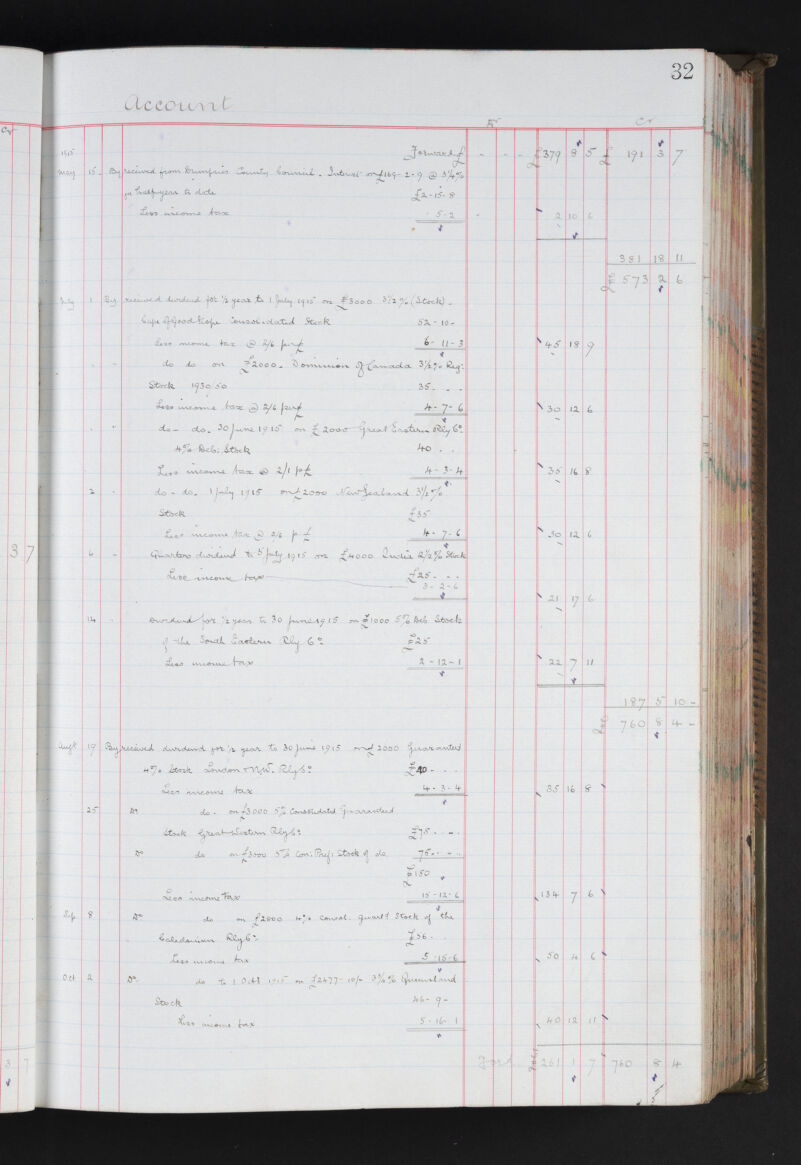 32
Account
Cr Dr Cr
1915 Forward £ - - - £379 8 5 £ 191 3 7
May 15 - By received from Dumfries County Council. Interest on £169-2-9 @ 3¼%
for half year to date £2-15-8
Less income tax - 5-2 2 10 6
381 18 11
£ 573 2 6
July 1 By received dividend for ½ year to 1 July 1915 on £3000 3½% (Stock) -
Cape of Good Hope Consolidated Stock 52-10-
Less income tax @ 2/6 per £ 6-11-3 45 18 9
do do on £2000. Dominion of Canada 3½% Reg:
Stock 1930/50 35 - -
Less income tax @ 2/6 per £ 4-7-6 30 12 6
do - do. 30 June 1915 on £2000 Great Eastern Rly Co.
4% Deb: Stock 40 - -
Less income tax @ 2/1 p £ 4-3-4 35 16 8
2 - do - do. 1 July 1915 on £2000 New Zealand 3½%
Stock £35
Less income tax @ 2/6 p £ 4-7-6 30 12 6
3 7
6 - Quarters dividend to 5 July 1915 on £4000 India 2½% Stock
Less income tax £25 - -
3-2-6
21 17 6
14 - Dividend for ½ year to 30 June 1915 on £1000 5% Deb Stock
of the South Eastern Rly Co. £25
Less income tax 2-12-1 22 7 11
187 5 10 -
760 8 4 -
Augt 19 By received dividend for ½ year to 30 June 1915 on £2000 Guaranteed
4% Stock London & N.W. Rly Co. £40 - -
Less income tax 4-3-4 35 16 8
25 Do do. on £3000 5% Consolidated Guaranteed
Stock Great Western Rly Co. £75 - -
Do do on £3000 5% Con: Pref: Stock of do 75 - -
£150
Less income tax 15-12-6 134 7 6
Sep 8 Do do on £2800 4% Consol. Guart Stock of the
Caledonian Rly Co. £56 -
Less income tax 5-15-6 50 4 6
Oct 2 Do do to 1 Octr 1915 on £2477-10/- 3¾% Queensland
Stock 46-9-
Less income tax 5-16-1 40 12 11
8 7
Ford 261 1 7 760 8 4